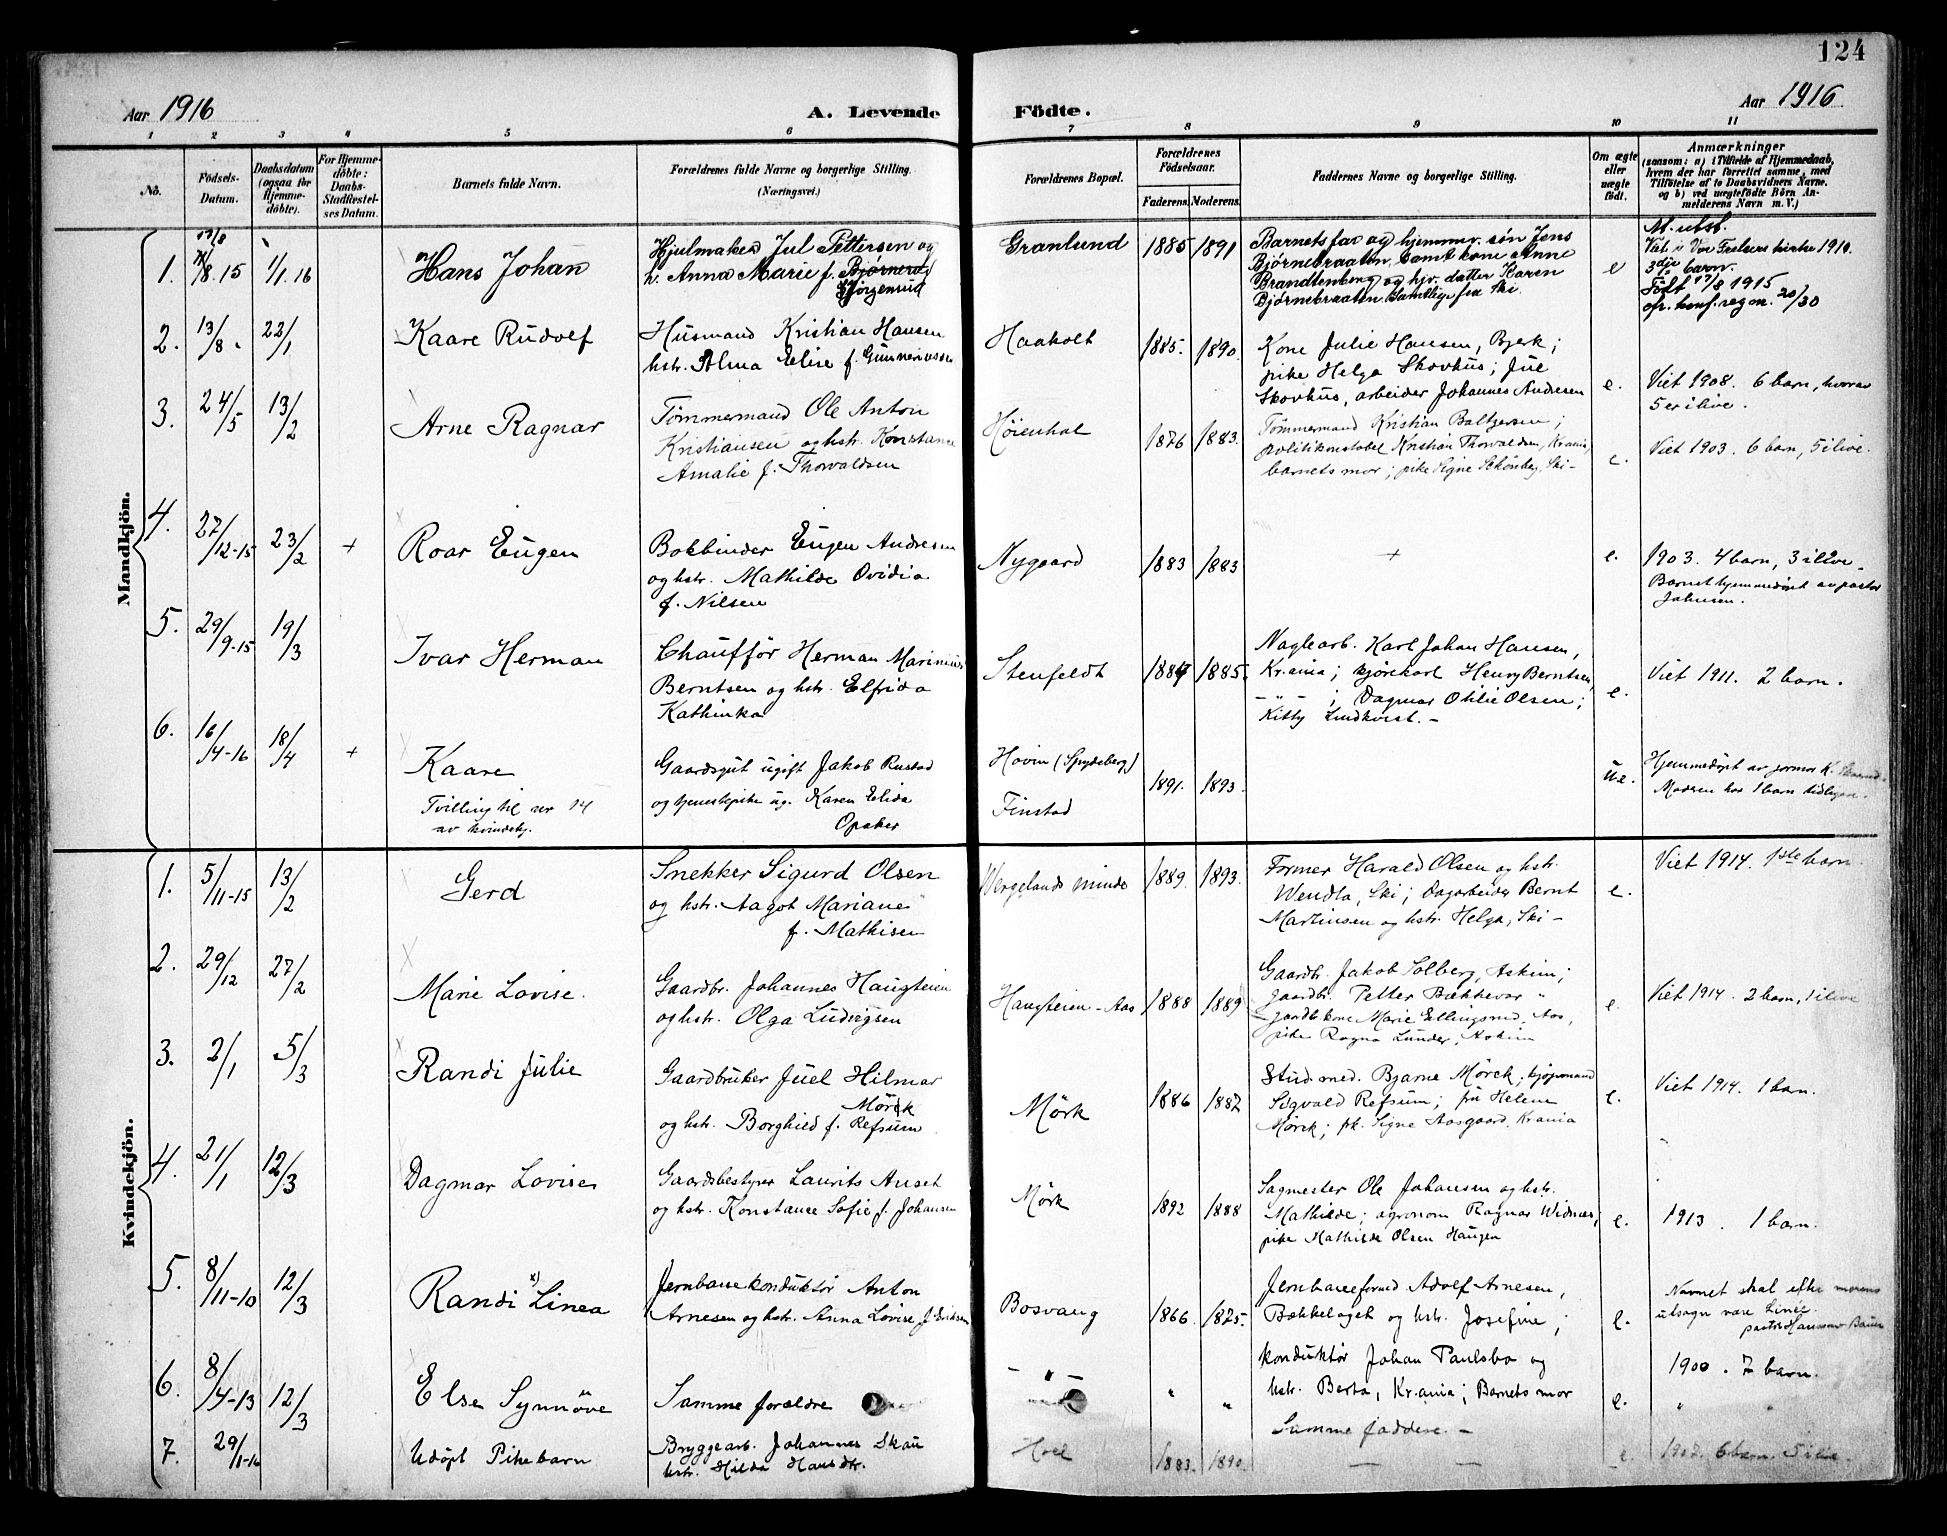 124
Aar 1916
A. Levende
Födte.
Aar 1916
1 2 3 4 5 6 7 8 9 10 11
No.
Födsels-Datum.
Daabsdatum (ogsaa for Hjemme-döbte).
For Hjemme-döbte: Daabs-Stadfæstelses Datum.
Barnets fulde Navn.
Forældrenes fulde Navne og borgerlige Stilling. (Næringsvei.)
Forældrenes Bopæl.
Forældrenes Födselsaar.
Faderens. Moderens.
Faddernes Navne og borgerlige Stilling.
Om ægte eller uægte födt.
Anmærkninger
(saasom: a) i Tilfælde af Hjemmedaab, hvem der har forrettet samme, med Tilföielse af to Daabsvidners Navne, og b) ved uægtefödte Börn Anmelderens Navn m. V.)
Mandkjön.
1. 17/8 15 1/1.16 Hans Johan
Hjulmaker Jul Pettersen og
h. Anna Marie f. Bjørnerud
Gjørgenrud
Granlund 1885 1891
Barnets far og hjemmv. søn Jens
Bjørnebraaten samt kone Anne
Brandtenborg og hjv. datter Karen
Bjørnebraaten samtlige fra Ski.
e
M. utsb.
Viet i Vor Frelsers kirke 1910.
3dje barn.
Født 17/8 1915
ofr. konf. reg nr. 20/30
2. 13/8 22/1 Kaare Rudolf
Husmand Kristian Hansen
hstr. Alma Elise f. Gunneriussen
Haakolt 1885. 1890.
Kone Julie Hansen, Bjerk;
pike Helga Skovhus; Jul
Skovhus, arbeider Johannes Andresen
e.
Viet 1908. 6 barn, hvorav
5 er ilive.
3. 24/5 13/2 Arne Ragnar
Tømmermand Ole Anton
Kristiansen og hstr. Konstance
Amalie f. Thorvaldsen
Høienhal 1876 1883.
Tømmermand Kristian Baltzersen;
politikonstabel Kristian Thorvaldsen, Kr.ania,
barnets mor; pike Signe Schönberg, Ski-
e.
Viet 1903. 6 barn, 5 ilive.
4. 27/12-15 23/2 + Roar Eugen
Bokbinder Eugen Andresen
og hstr. Mathilde Ovidia
f. Nilsen
Nygaard 1883 1883
+
e.
1903. 4 barn, 3 ilive.
Barnet hjemmedøpt av pastor
Johnsen.
5. 29/9-15 19/3 Ivar Herman
Chauffør Herman Marinius
Berntsen og hstr. Elfrida
Kathinka
Stenfeldt 1884 1885.
Naglearb. Karl Johan Hansen,
Kr.ania; kjørekarl Henry Berntsen,
- " - ; Dagmar Othilie Olsen;
Kitty Lindkvist. -
e.
Viet 1911. 2 barn.
6. 16/4-16 18/4 + Kaare
Tvilling til nr 14
av kvindekj.
Gaardsgut ugift Jakob Rustad
og tjenestepike ug. Karen Elida
Opaker
Hovin (Spydeberg)
Finstad
1891. 1893.
u.e.
Hjemmedøpt av jormor K.
Moderen har 1 barn tidligere.
Kvindekjön.
1. 5/11-15 13/2 Gerd
Snekker Sigurd Olsen
og hstr. Aagot Mariane
f. Mathisen
Wergelands minde 1889. 1893.
Former Harald Olsen og hstr.
Wendla, Ski; Dagarbeider Bernt
Martinsen og hstr. Helga, Ski -
e.
Viet 1914. 1ste barn.
2. 29/12 27/2 Marie Lovise.
Gaardbr. Johannes Haugteien
og hstr. Olga Ludvigsen
Haugteien - Aas 1888 1889
Gaardbr. Jakob Solberg, Askim;
gaardbr. Petter Bækkevar "
gaardbr kone Marie Ellingsrud, Aas,
pike Ragna Lunder, Askim
e.
Viet 1914. 2 barn, 1 ilive
3. 2/1 5/3 Randi Julie
Gaardbruker Juel Hilmar
Mørk
og hstr. Borghild f. Refsum
Mørk 1886 1887
Stud. med. Bjarne Mørck; kjøpmand
Sigvald Refsum; fru Helene
Mørck; pk. Signe Aasgaard, Kr.ania
e.
Viet 1914. 1 barn.
4. 21/1 12/3 Dagmar Lovise
Gaardsbestyrer Laurits Anset
og hstr. Konstance Sofie f. Johansen
Mørk 1892 1888
Sagmester Ole Johansen og hstr.
Mathilde; agronom Ragnar Widnes;
pike Mathilde Olsen Haugen
e.
1913. 1 barn.
5. 8/11-10 12/3 Randi x) Linea
Jernbanekonduktør Anton
Arnesen og hstr. Anna Lovise f. Eriksen
Bosvang 1866. 1875.
Jernbaneformd Adolf Arnesen,
Bækkelaget og hstr. Josefine;
konduktør Johan Paulsbo og
hstr. Berta, Kr.ania; Barnets mor
e.
Navnet skal efter morens
utsagn være Linée.
pastor Hansson Bauer
1900. 7 barn.
6. 8/4-13 12/3 Else Synnöve
Samme forældre
- " -
" "
Samme faddere. -
e.
"
7. 29/1-16 Udøpt Pikebarn
Bryggearb. Johannes Skau
hstr. Hilda Hansdtr.
Hoel 1883. 1890.
— —
e.
1907. 6 barn. 5 ilive.